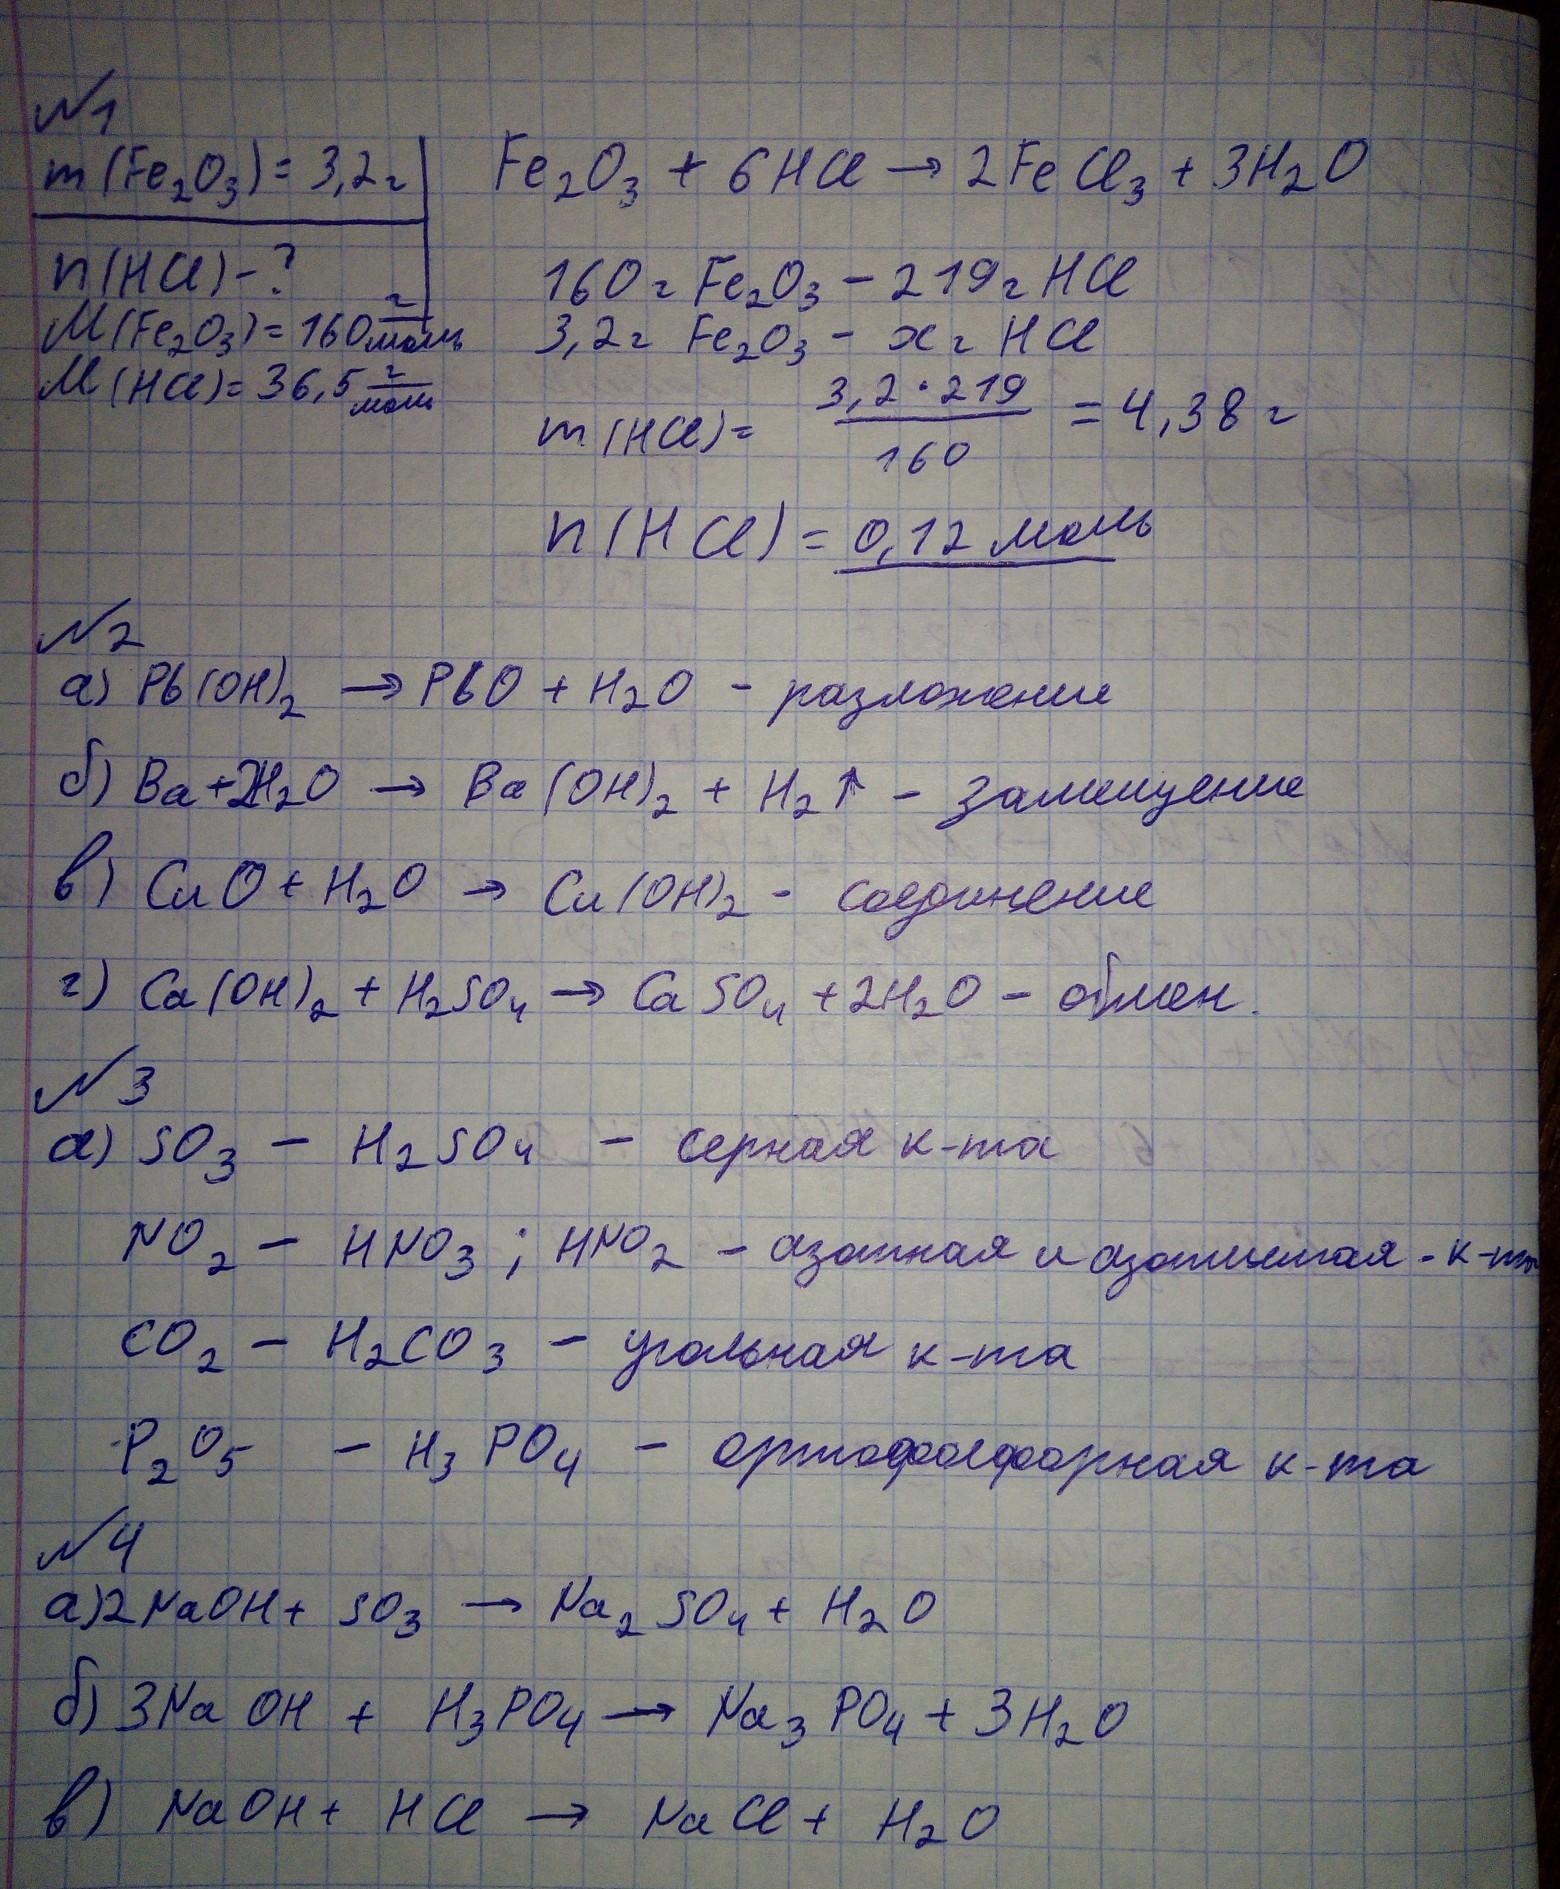 №1
m(Fe₂O₃) = 3,2г
Fe₂O₃ + 6HCl → 2FeCl₃ + 3H₂O
n(HCl) - ?
160г Fe₂O₃ - 219г HCl
M(Fe₂O₃) = 160 г/моль
3,2г Fe₂O₃ - x г HCl
M(HCl) = 36,5 г/моль
m(HCl) = 3,2 · 219 / 160 = 4,38 г
n(HCl) = 0,12 моль
№2
а) Pb(OH)₂ → PbO + H₂O - разложение
б) Ba + 2H₂O → Ba(OH)₂ + H₂↑ - замещение
в) CuO + H₂O → Cu(OH)₂ - соединение
г) Ca(OH)₂ + H₂SO₄ → CaSO₄ + 2H₂O - обмен.
№3
а) SO₃ - H₂SO₄ - серная к-та
NO₂ - HNO₃ ; HNO₂ - азотная и азотистая - к-та
CO₂ - H₂CO₃ - угольная к-та
P₂O₅ - H₃PO₄ - ортофосфорная к-та
№4
а) 2NaOH + SO₃ → Na₂SO₄ + H₂O
б) 3NaOH + H₃PO₄ → Na₃PO₄ + 3H₂O
в) NaOH + HCl → NaCl + H₂O